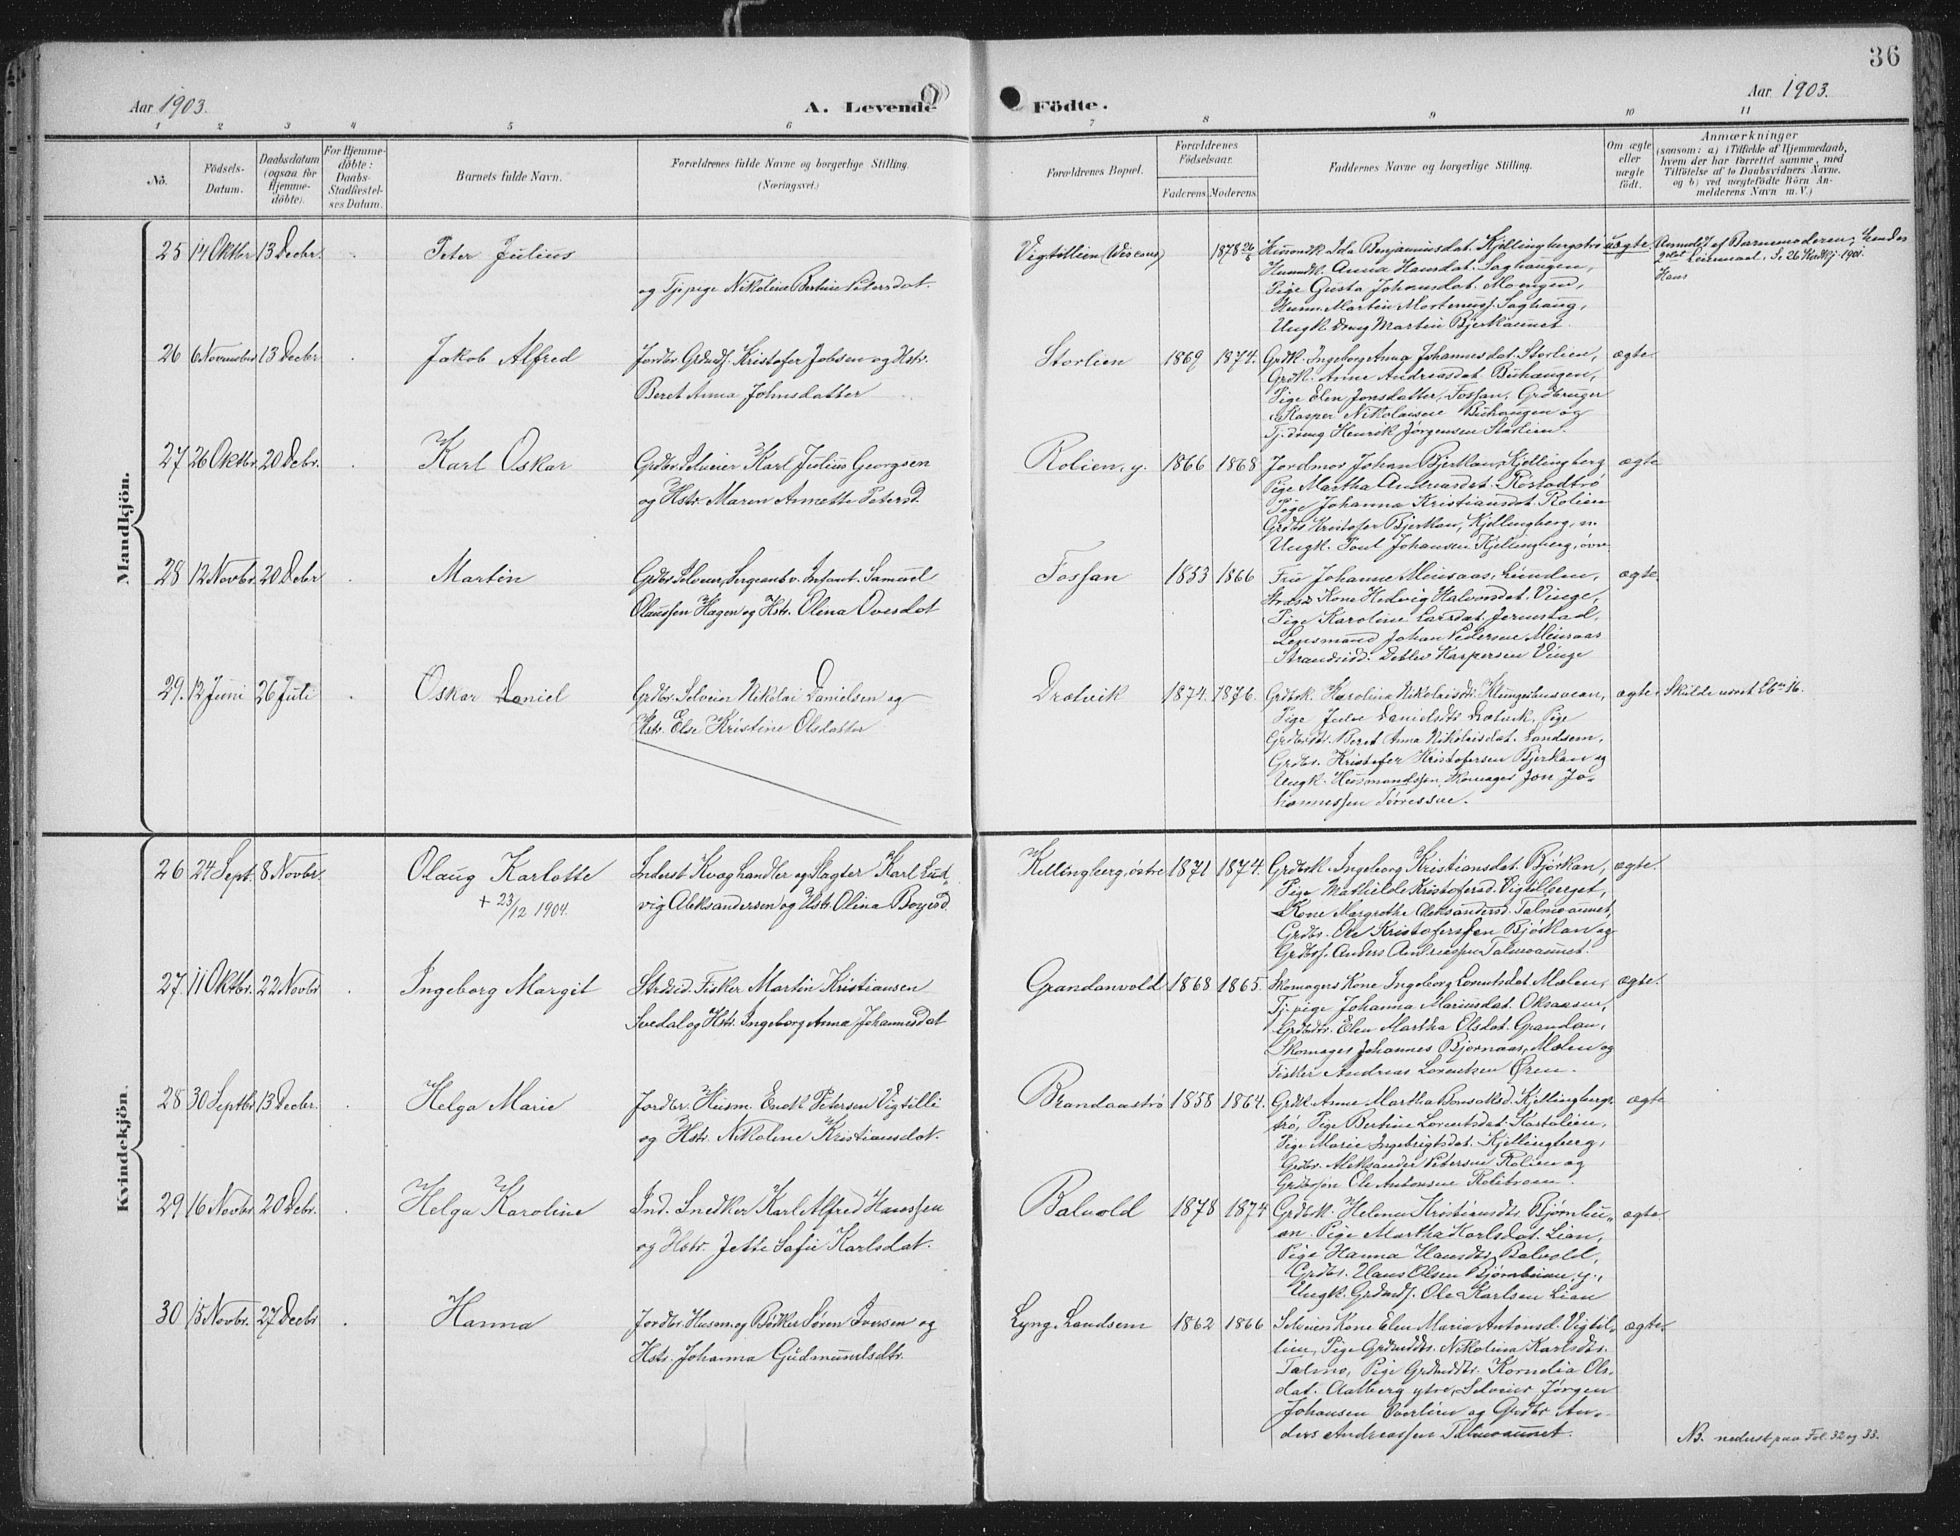 36
Aar 1903.
A. Levende Födte.
Aar 1903.
1 2 3 4 5 6 7 8 9 10 11
No.
Födsels-Datum.
Daabsdatum (ogsaa för Hjemme-döbte).
For Hjemme-döbte: Daabs-Stadfæstel-ses Datum.
Barnets fulde Navn.
Forældrenes fulde Navne og borgerlige Stilling.
(Næringsvei.)
Forældrenes Bopæl.
Forældrenes Födselsaar.
Faderens Moderens
Faddernes Navne og borgerlige Stilling.
Om ægte eller uægte födt.
Anmærkninger
(saasom: a) i Tilfælde af Hjemmedaab,
hvem der har forrettet samme, med
Tilföielse af to Daabsvidners Navne.
og b) ved uægtefödte Börn An-
melderens Navn m. V.)
Mandkjön.
25 14 Oktbr 13 Decbr. Peter Julius
og Tjpige Nikoline Bertine Petersdat.
Vigtillien 1878
Husmdk. Ida Benjaminsdat. Kjellingbergstrø
Husmdk. Anna Hansdat. Saghaugen,
Pige Gusta Johansdat. Moengen,
Husm. Martin Mortenssf. Saghaug,
Ungk. Dreng Martin Bjerkaunet.
uægte
Anmeldt af Barnemoderen, hendes
2det Leiermaal.
Hans
26 6 November 13 Decbr Jakob Alfred
Jordbr. Grdmdsf. Kristofer Jobsen og Hstr.
Beret Anna Johnsdatter
Storlien 1869 1874.
Grdk. Ingeborg Anna Johannesdat. Storlien,
Grdk. Anne Andreasdat. Buhaugen,
Pige Elen Jonsdatter, Fossan, Grdbruger
Kasper Nikolaisen Buhaugen og
Tj.dreng Henrik Jørgensen Storlien.
ægte
27 26 Oktbr. 20 Debr. Karl Oskar
Grdbr. Selveier Karl Julius Georgsen
og Hstr. Maren Annette Petersd.
Rolien, y. 1866 1868
Jordmor Johan Bjerkan, Kjellingberg
Pige Martha Andreasdat. Ristadtrø
Pige Johanna Kristiansdat. Rolien
Grdbr Kristofer Bjerkan, Kjellingberg, n.
Ungk. Poul Johansen Kjellingberg, øvr.
ægte
28 12 Novbr. 20 Debr Martin
Grdbr. Selveier, Sergeant v. Infant. Samuel
Olaussen Hagen og Hstr. Olina Ovesdat
Fossan 1853 1866
Fru Johanne Meiraas, Lunden,
Strdsd. Kone Hedvig Halvorsdat. Vinge,
Pige Karoline Larsdat. Jernstad,
Lensmand Johan Pedersen Meiraas
Strandsidd. Detlev Kaspersen Vinge
ægte.
29. 12 Juni 26 Juli Oskar Daniel
Grdbr. Selveier Nikolai Danielsen og
Hstr. Else Kristine Olsdatter
Drætvik 1874. 1876.
Grdbk. Karoline Nikolaisdt. Klungerhusvean,
Pige Julie Danielsdtr Drætvik, Pige
Grdbrdtr. Beret Anna Nikolaisdat. Landsem,
Grdbr. Kristofer Kristofersen Bjerkan og
Ungk. Husmandssøn, Skomager Jon Jo-
hannessen Tørresen.
ægte. Skulde været No. 16.
Kvindekjön.
26 24 Sept. 8 Novbr. Olaug Karlotte
+ 23/12 1904.
Inderst Kvæghandler og Slagter Karl Lud-
vig Aleksandersen og Hstr. Olina Boyesd.
Kellingberg, østre 1871 1874.
Grdbk. Ingeborg Kristiansdat. Bjørkan,
Pige Mathilde Kristofersd. Vigtilberget,
Kone Margrethe Aleksandersd. Talmoaunet,
Grdbr. Ole Kristofersen Bjørkan og
Grdbrsf. Anders Andreassen Talmoaunet.
ægte.
27 11 Oktbr. 22 Novbr Ingeborg Margit
Strdsid. Fisker Martin Kristiansen
Svedal og Hstr. Ingeborg Anna Johannesdat
Grandanvold 1868 1865.
Skomagers Kone Ingeborg Lorentsdat. Mælen,
Tj.pige Johanna Mariusdat. Oksaasen,
Grdbdtr. Elen Martha Olsdat. Grandan,
Skomager Johannes Bjørnaas, Mælen og
Fisker Andreas Lorentsen Øren.
ægte.
28 30 Septbr. 13 Decbr. Helga Marie
Jordbr. Husm. Enok Petersen Vigtilli
og Hstr. Nikoline Kristiansdat.
Brandaastrø 1858 1864.
Grdk. Anne Martha Bonsaksd. Kjellingberg-
trø, Pige Bertine Lorentsdat. Kastolien,
Pige Marie Ingebrigtsdat. Kjellingberg,
Grdbr. Aleksander Petersen Rolien og
Grdbrsøn Ole Antonsen
ægte
29 16 Novbr. 20 Debr. Helga Karoline
Ind. Snedker Karl Alfred Hanssen
og Hstr. Jette Sofie Karlsdat.
Balvold 1878 1874
Grdbk. Helena Kristiansdtr. Bjørnleu-
an, Pige Martha Karlsdat. Lian,
Pige Hanna Hansdtr. Balvold,
Grdbr. Hans Olsen Bjørnleuan, y.,
Ungk. Grdmdsf. Ole Karlsen Lian
ægte.
30 15 Novbr. 27 Decbr Hanna
Jordbr. Husm. og Bøtker Søren Iversen og
Hstr. Johanna Gudmundsdtr.
Lyng. Landsem 1862 1866
Selveiers Kone Elen Maria Antonsd. Vigtil-
lien, Pige Grdmddtr. Nikolina Karlsdtr.
Talmo, Pige Grdmddtr. Kornelia Ols-
dat. Aalberg ytre, Selveier Jørgen
Johansen Overlien og Grdbr An-
ders Andreassen Talmoaunet.
ægte.
NB. nederst paa Fol. 32 og 33.